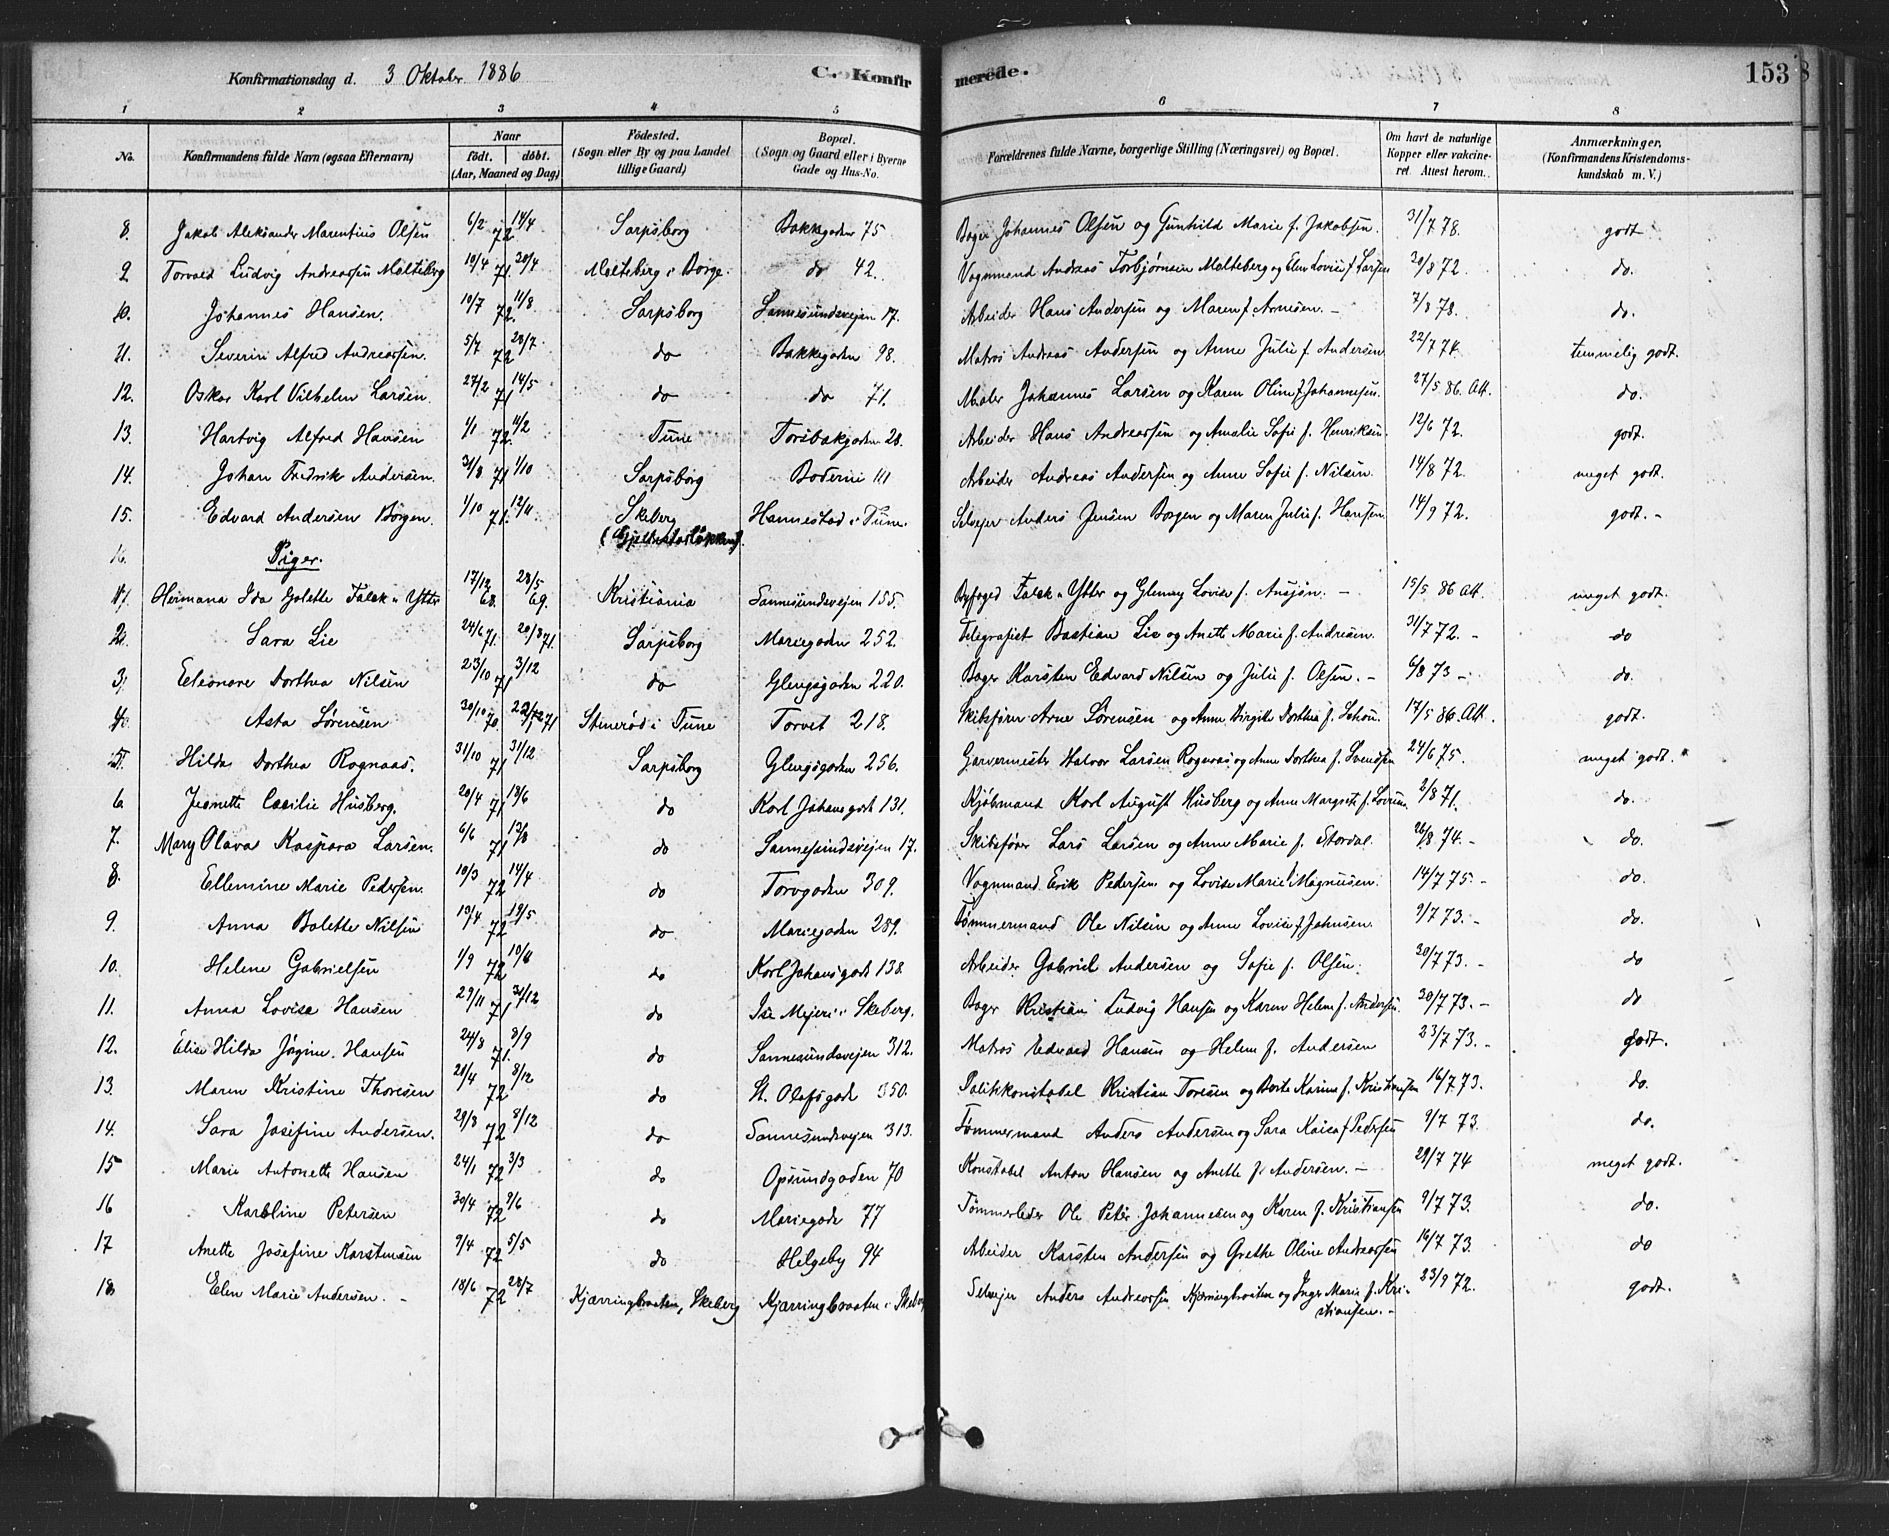 Konfirmationsdag d. 3 Oktober 1886 C. Konfirmerede. 153
1 2 3 4 5 6 7 8
No. Konfirmandens fulde Navn (ogsaa Efternavn) Naar født. døbt. (Aar, Maaned og Dag) Fødested. (Sogn eller By og paa Landet tillige Gaard) Bopæl. (Sogn og Gaard eller i Byerne Gade og Hus-No. Forældrenes fulde Navne, borgerlige Stilling (Næringsvei) og Bopæl. Om havt de naturlige Kopper eller vakcineret. Attest herom. Anmærkninger, (Konfirmandens Kristendomskundskab m. V.)
8. Jakob Aleksander Marentius Olsen 6/2 72 14/4 Sarpsborg Bakkegaden 75 Bager Johannes Olsen og Gunhild Marie f. Jakobsen. 31/7 78. godt
9 Torvald Ludvig Andreassen Molteberg 10/4 71. 20/4 Molteberg i Borge. do 42. Vognmand Andreas Torbjørnsen Molteberg og Elen Lovise f. Larsen 20/8 72. do.
10. Johannes Hansen. 10/7 72. 11/8 Sarpsborg Sannesundsvejen 17. Arbeider Hans Andersen og Maren f. Arnesen. – 7/8 78. do.
11. Severin Alfred Andreassen. 5/7 72 28/7 do Bakkegaden 98. Matros Andreas Andersen og Anne Julie f. Andersen 22/7 74. temmelig godt.
12. Oskar Karl Vilhelm Larsen. 27/2 71 14/5 do do 71. Maler Johannes Larsen og Karen Oline f. Johannesen. 27/5 86 Att. do.
13. Hartvig Alfred Hansen 1/1 72. 11/2 Tune Torsbakgaden 28. Arbeider Hans Andreassen og Amalie Sofie f. Henriksen. 12/6 72. godt.
14. Johan Fredrik Andersen. 31/8 71 1/10 Sarpsborg Boderne 111 Arbeider Andreas Andersen og Anne Sofie f. Nilsen. 14/8 72. meget godt.
15. Edvard Andersen Borgen. 1/10 71. 12/11 Skeberg Hannestad i Tune. Selvejer Anders Jensen Borgen og Maren Julie f. Hansen. 14/9 72. godt. –
16. Piger.
1. Hermana Ida Golette Falck-Ytter 17/12 68. 28/5 69. Kristiania Sannesundsveien 155. Byfoged Falck-Ytter og Glenny Lovise f. – 15/5 86 Att. meget godt.
2. Sara Lie 24/6 71. 20/8 71. Sarpsborg Mariegaden 252. Telegrafist Bastian Lie og Anette Marie f. Andresen. 31/7 72. – do
3. Eleonore Dorthea Nilsen 23/10 71 3/12 do Glengsgaden 220. Bager Karsten Edvard Nilsen og Julie f. Olsen. – 6/8 73 – do.
4. Asta Sørensen 30/10 70. 71 Stenerød i Tune Torvet 218. Skibsfører Arne Sørensen og Anne Birgitte Dorthea f. Schou. 17/5 86. Att. godt.
5. Hilda Dorthea Rognaas. 31/10 71 31/12 Sarpsborg Glengsgaden 256. Garvermester Halvor Larsen Rognaas og Anne Dorthea f. Svendsen 24/6 75. meget godt.
6 Jeanette Cecilie Husberg. 20/4 71 18/6 do Karl Johansgade 131. Kjøbmand Karl August Husberg og Anne Margrete f. 2/8 71. do.
7. Mary Olava Kaspara Larsen. 6/6 71 13/8 do Sannesundsvejen 17. Skibsfører Lars Larsen og Anne Marie f. Stordal. 26/8 74. – do.
8. Ellemine Marie Pedersen. 10/3 72 14/4 do Torvgaden 309. Vognmand Erik Pedersen og Lovise Marie f. Magnusen. 14/7 75. – do.
9. Anna Bolette Nilsen 19/4 72 19/5 do. Mariegaden 289. Tømmermand Ole Nilsen og Anne Lovise f. Johnsen. 9/7 73. – do.
10. Helene Gabrielsen 1/9 72 10/11 do Karl Johansgade 138. Arbeider Gabriel Andersen og Sofie f. Olsen. 30/7 73. – do
11. Anna Lovise Hansen 29/11 71 31/12 do Ise Mejeri i Skeberg. Bager Kristian Ludvig Hansen og Karen Helene f. Andersen. 30/7 73. – do
12. Elise Hilda Jørgine Hansen 24/8 71. 8/9 do Sannesundsvejen 312. Matros Edvard Hansen og Helene f. Andersen 23/7 73. – godt.
13. Maren Kristine Thoresen 21/4 72 8/12 do St. Olafsgade 350. Politikonstabel Kristian Toresen og Dorte Karine f. Kristiansen 16/7 73. do.
14. Sara Josefine Andersen. 29/8 72 8/12 do Sannesundsvejen 313. Tømmermand Anders Andersen og Sara Kaisa f. Pedersen 9/7 73. do.
15 Marie Antonette Hansen 24/1 72 3/3 do Opsundgaden 70 Konstabel Anton Hansen og Anette f. Andersen. – 29/7 74 meget godt.
16 Karoline Petersen 30/4 72 9/6 do Mariegade 77 Tømmerleder Ole Peter Johannesen og Karen f. Kristiansen 9/7 73. do.
17 Anette Josefine Karstensen 9/4 72 5/5 do Helgeby 94 Arbeider Karsten Andersen og Grethe Oline Andreassen 16/7 73. do
18 Elen Marie Andersen. – 18/6 72 28/7 Kjærringbraaten, Skeberg Kjærringbraaten i Skeberg Selvejer Anders Andreassen Kjærringbraaten og Inger Marie f. Kristiansen. – 23/9 72. godt.